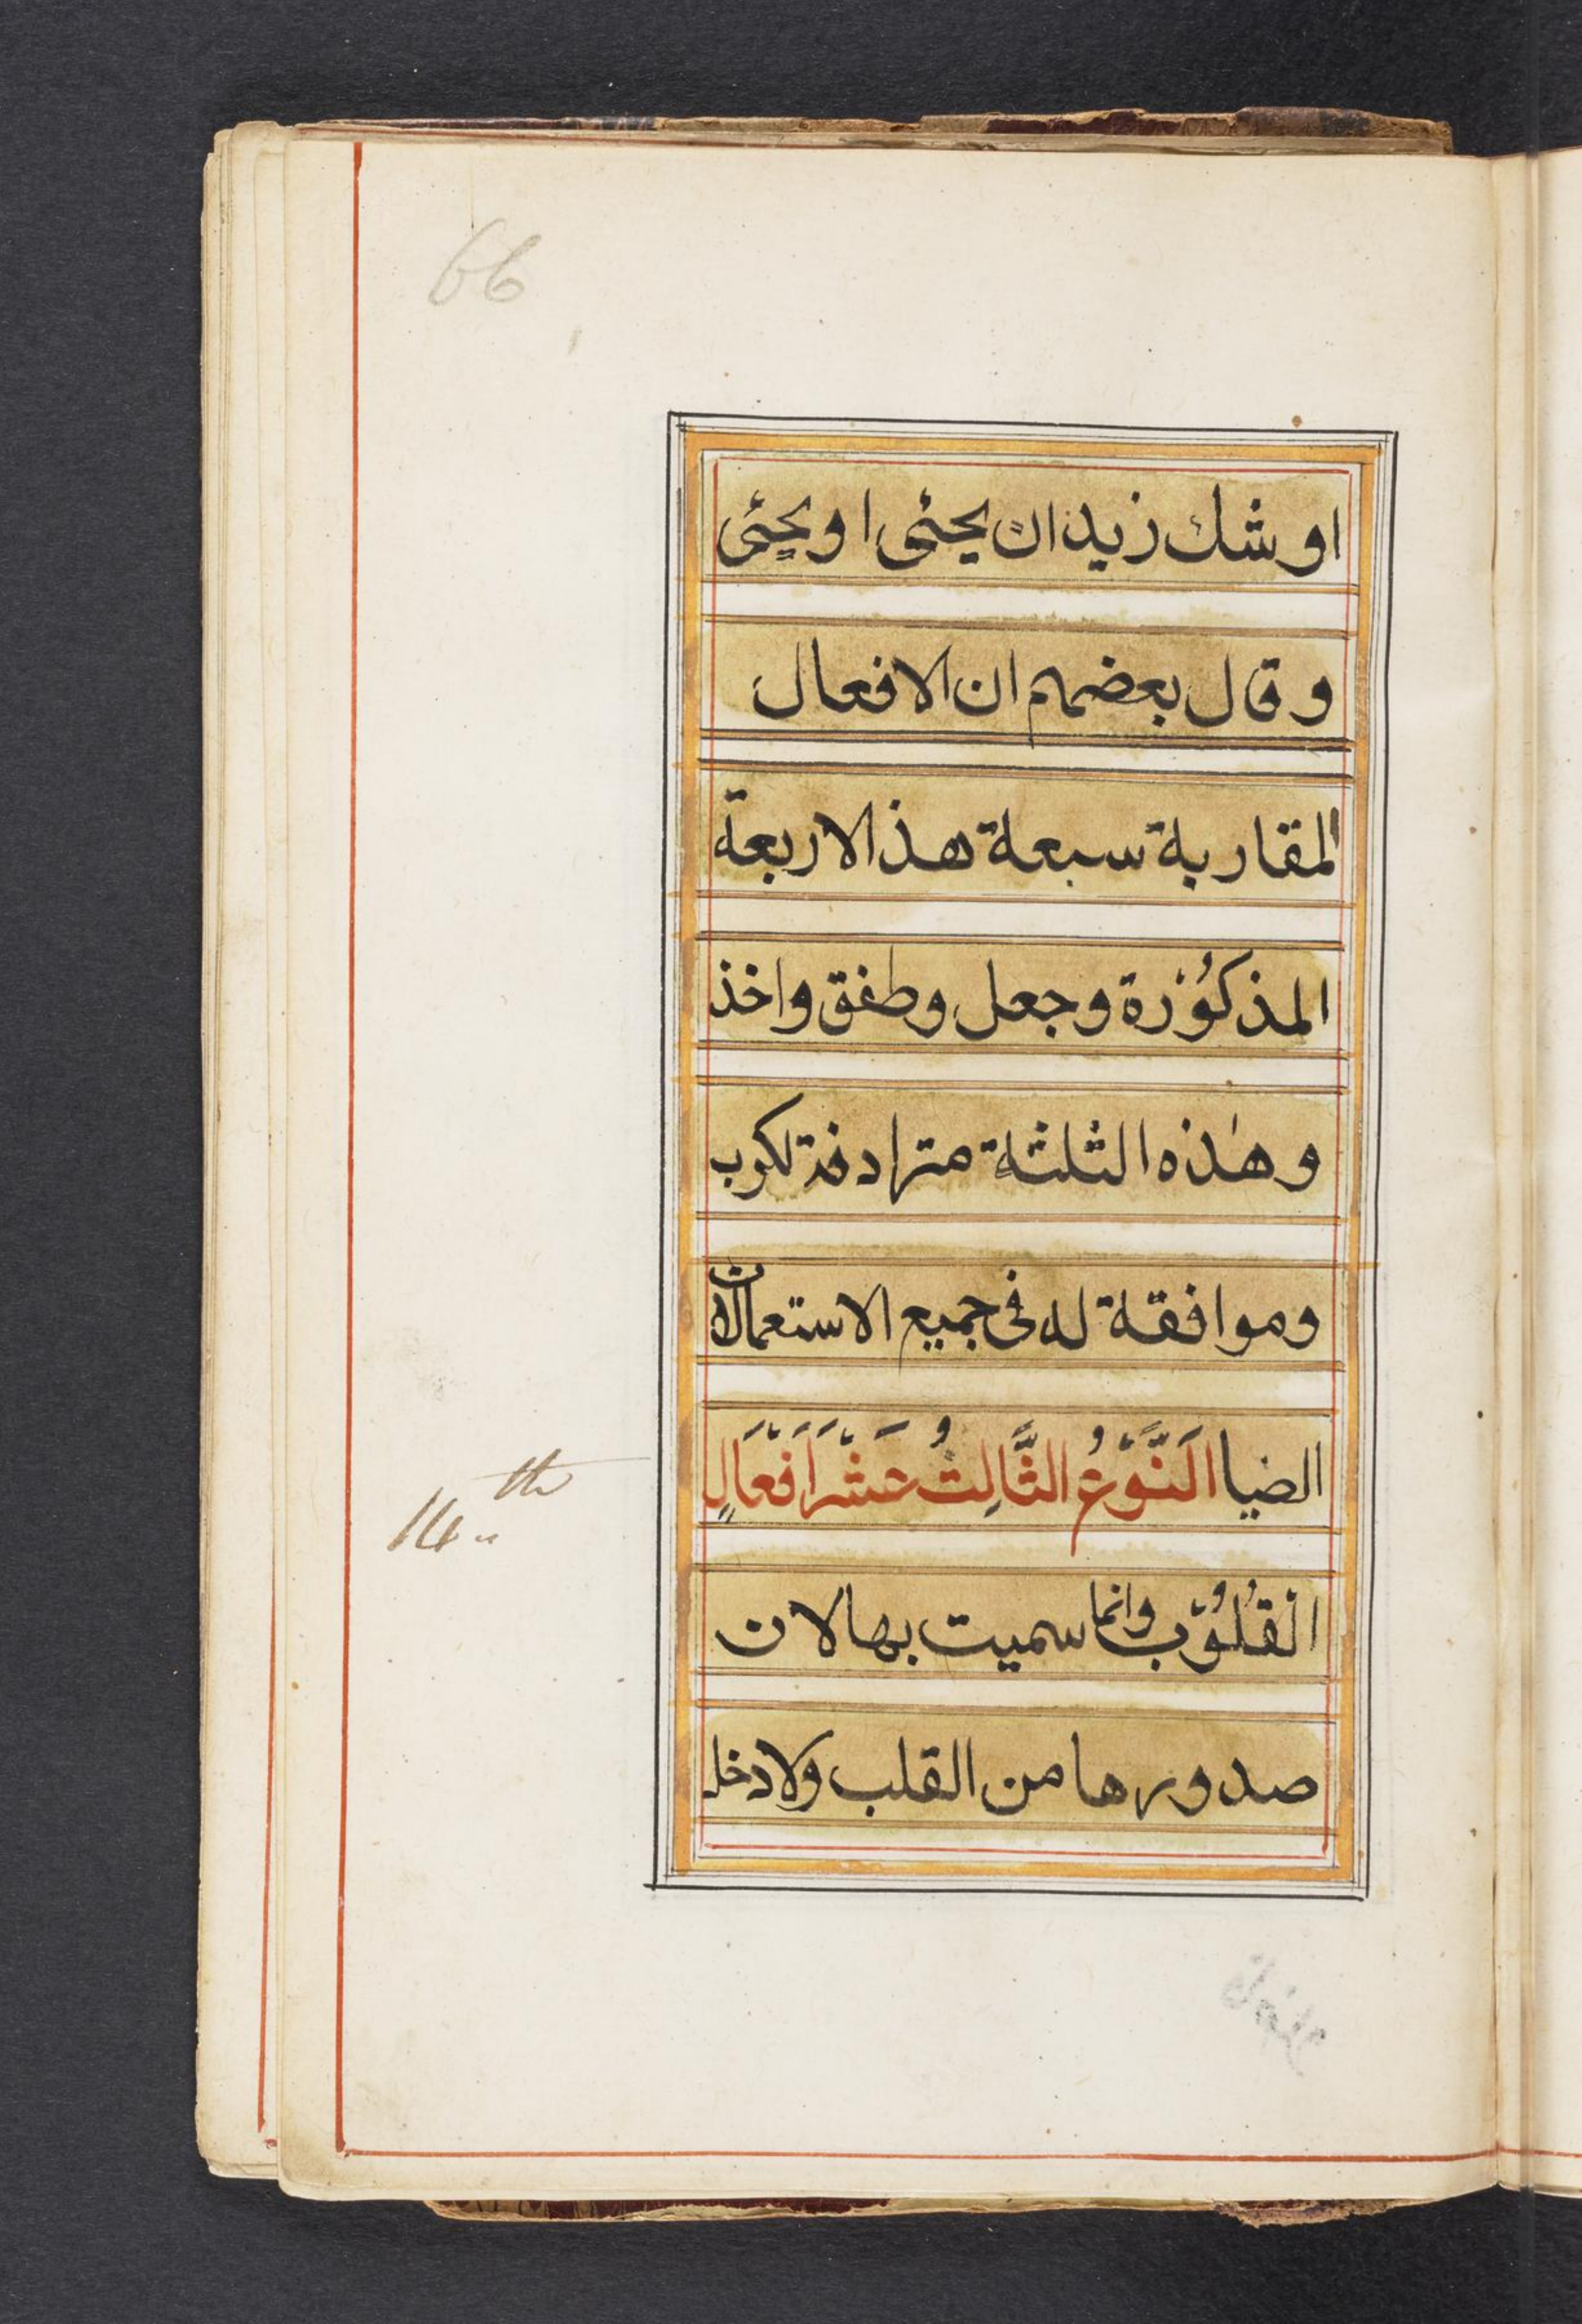 66
اوشك زيد ان يجئى او يجئى
وقال بعضهم ان الافعال
المقاربة سبعة هذ الاربعة
المذكُوْرة وجعل وطفق واخذ
وهٰذه الثلثة مترادفة لكرب
وموافقة له فى جميع الاستعمالات
14th
الضيا اَلنَّوْعُ الثَّالِثُ عَشَرَ اَفْعَالِ
الْقُلُوْبِ وانما سميت بها لان
صدورها من القلب ولا دخل